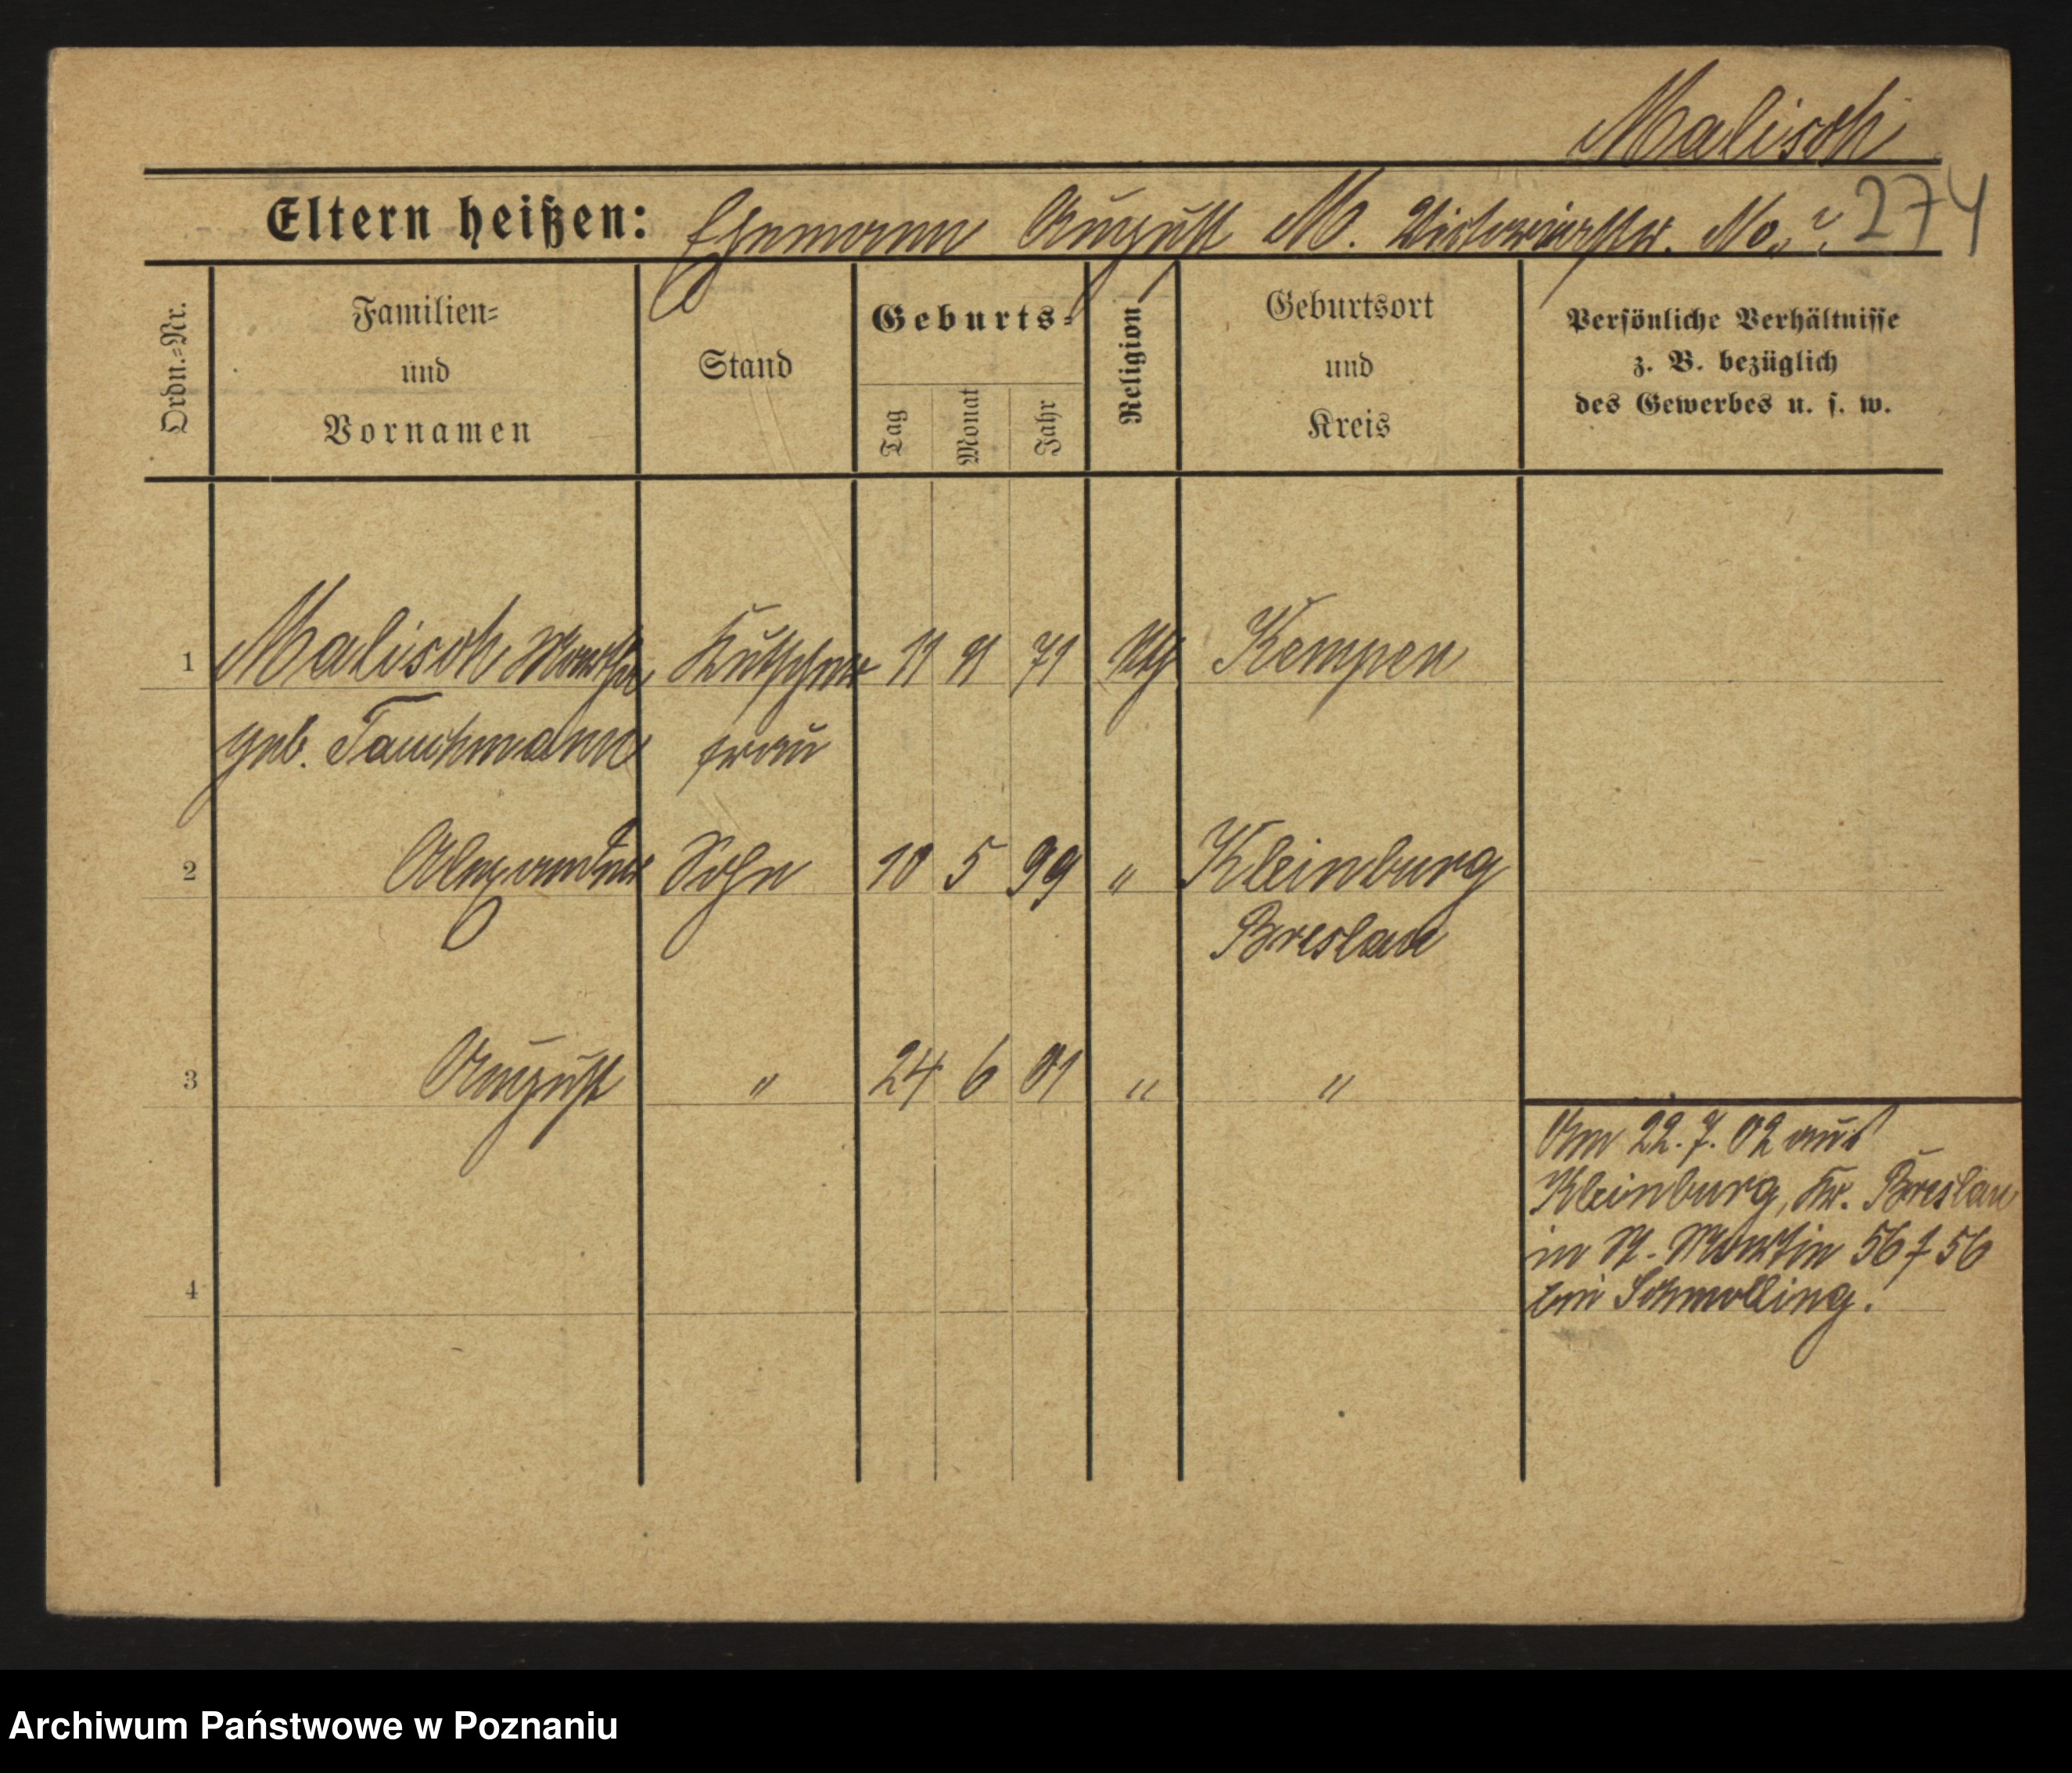 Malisch
Eltern heißen: Ehemann August M. No. 274
Ordn.-Nr.
Familien- und Vornamen
Stand
Geburts-
Tag Monat Jahr
Religion
Geburtsort und Kreis
Persönliche Verhältnisse
z. B. bezüglich
des Gewerbes u. s. w.
1 Malisch Martha Kutscher 11 9 71 Kempen
geb. Tauchmann frau
2 Alexander Sohn 10 5 99 " Kleinburg
Breslau
3 August " 24 6 01 " "
Am 22. 7. 02 aus
Kleinburg, Kr. Breslau
in St. Martin 56 f 56
bei Schmolling.
4
Archiwum Państwowe w Poznaniu